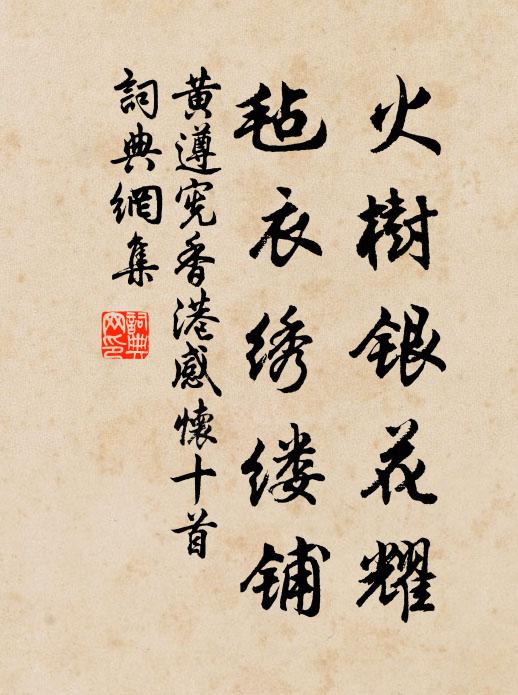 火樹銀花耀
毡衣绣缕铺
黄遵宪香港感懷十首
詞典網集
詞典網印